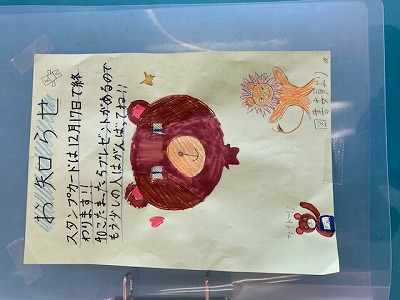 お知らせ
スタンプカードは12月17日で終
わります!!
40こたまったらプレゼントがあるので
もう少しの人はがんばってね!!
図書委員より